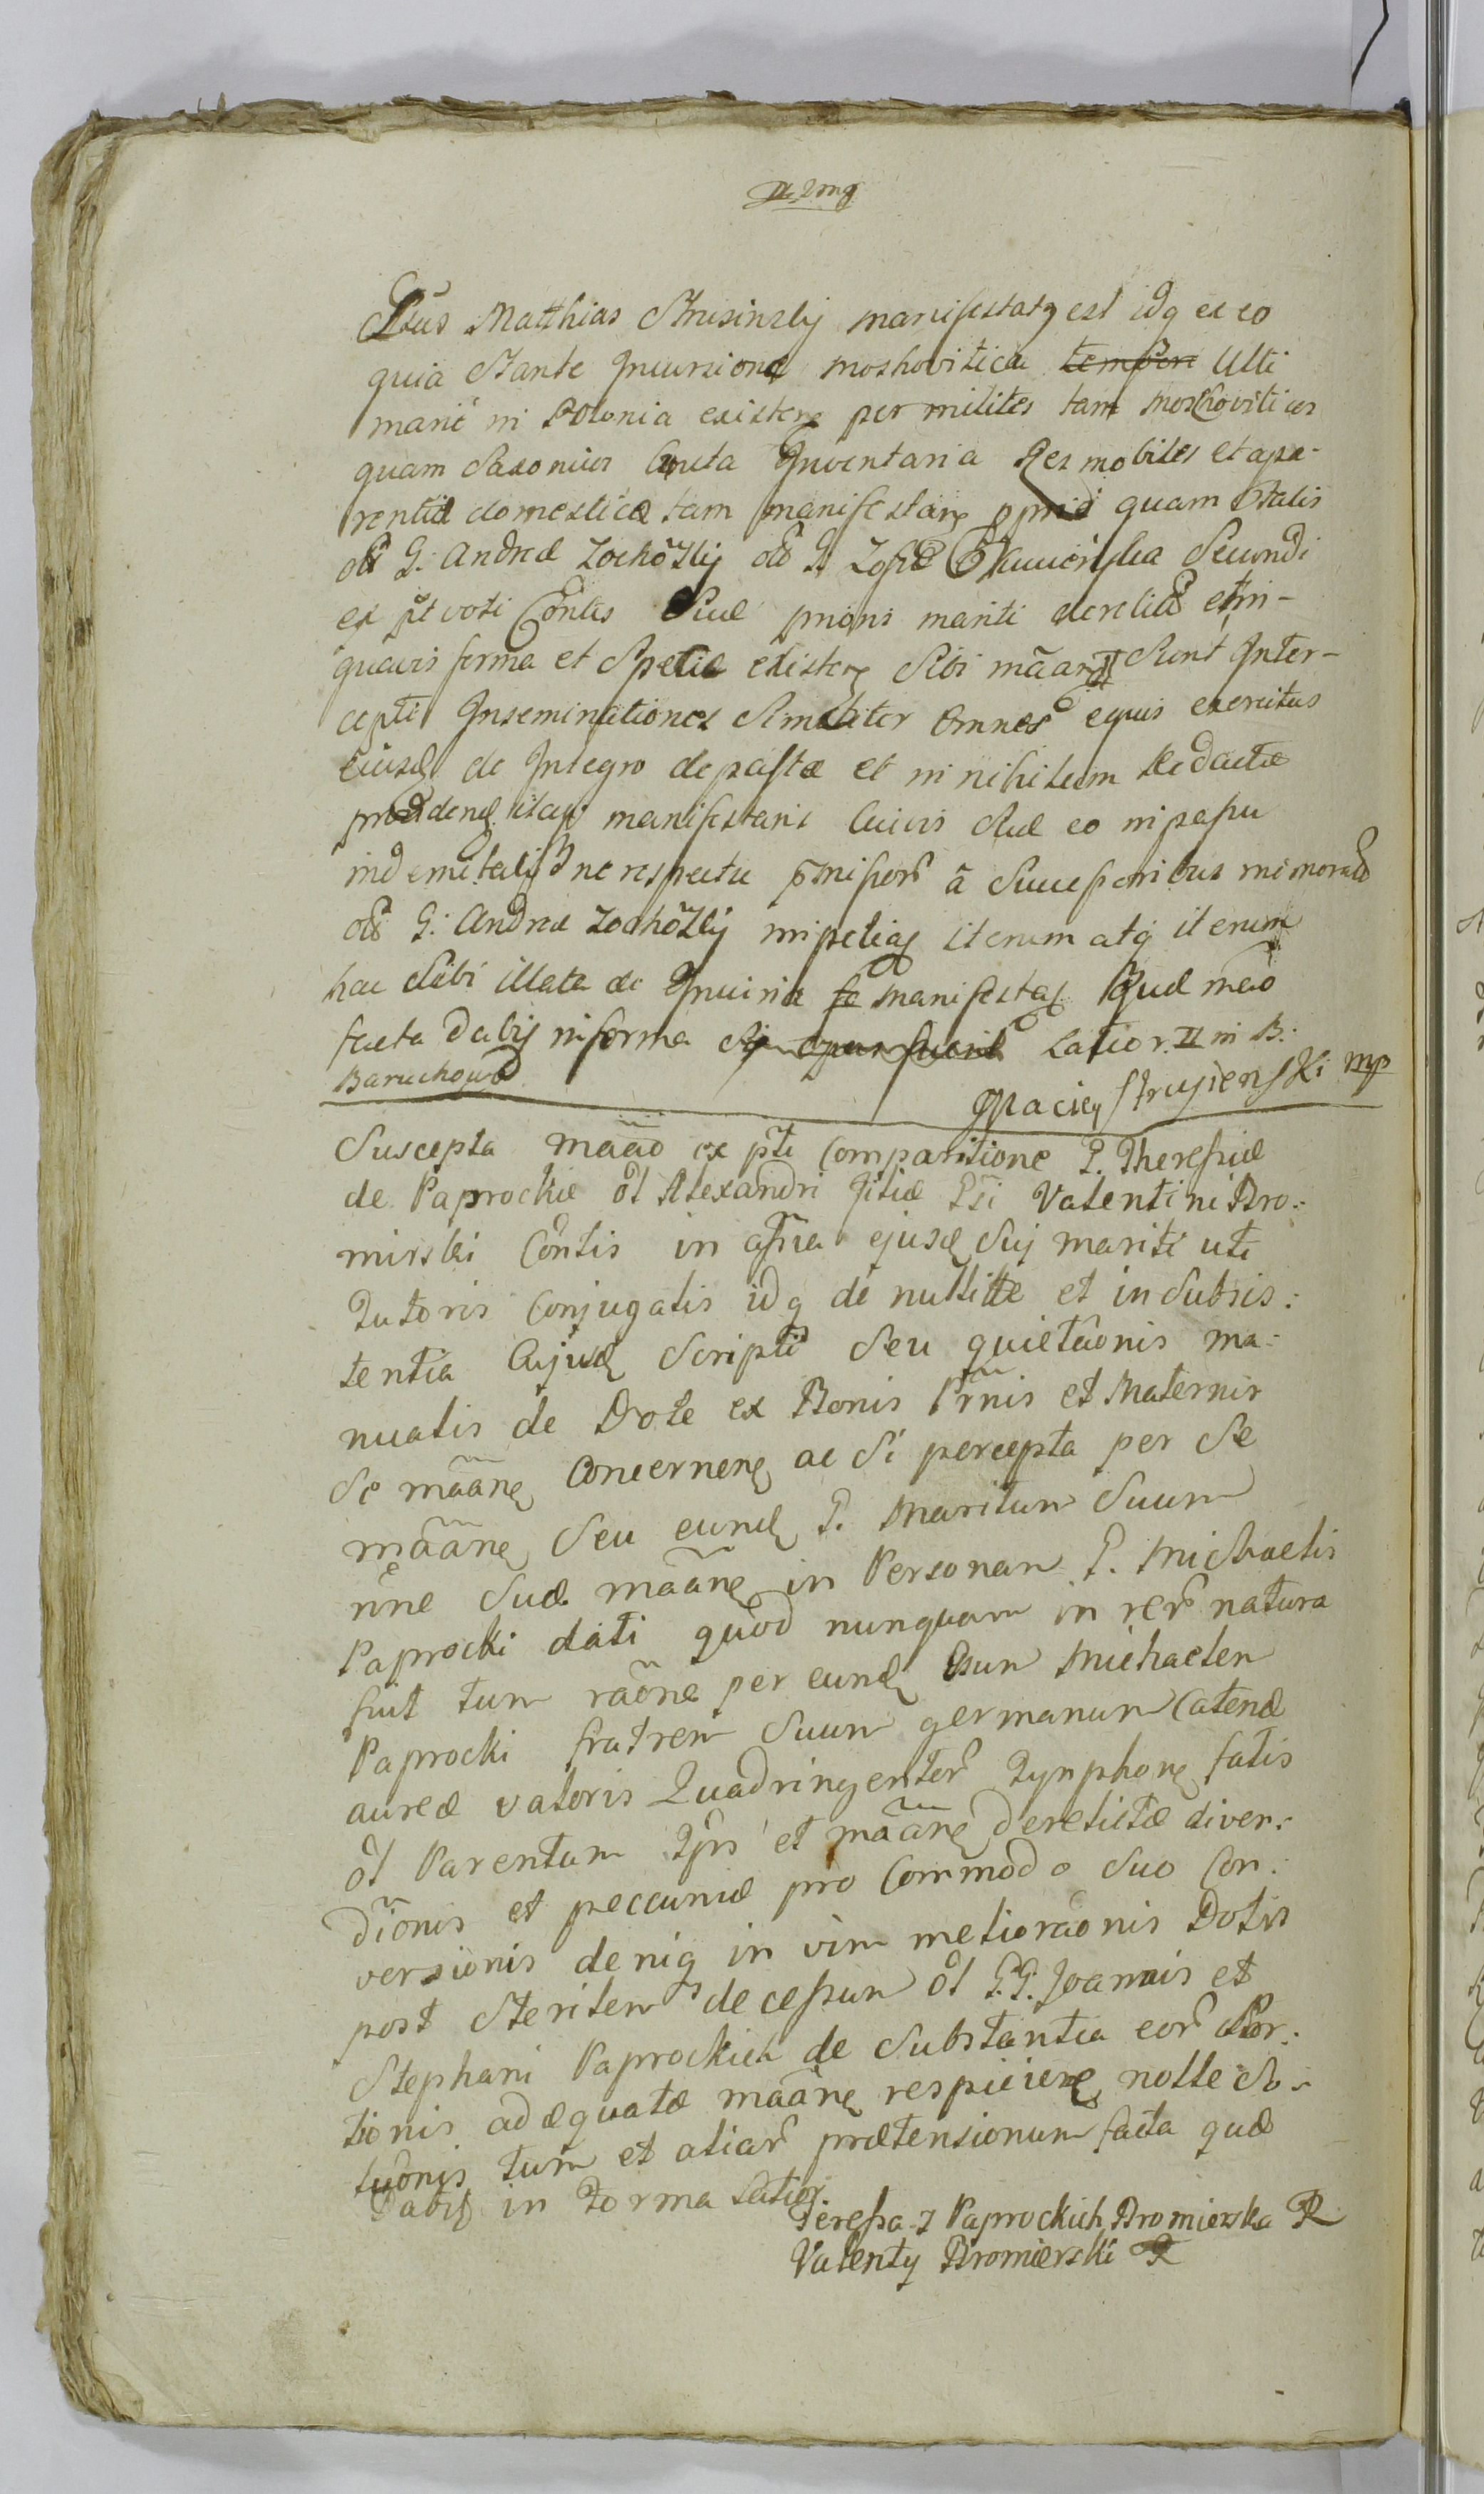 Gsus Matthias Strusinsky manifestatq est idq ex eo
quia Stante Incursione moshovitica tempore Ulti
marie in Polonia existen per milites tam moschoviticos
quam Saxonicos Cuncta Inventaria Res mobiles et apa-
rentia domestica tam manifestans quam
G: Andreæ Zochozky G. Secundi
ex voti Contis Suæ prioris mariti derelict et in-
quavis forma et Spetie existen Sibi Sunt Inter-
cepti Inseminationes Similiter Omnes equis exercitus
eiusd de Integro depastæ et in nihilum Redactæ
manifestans Cuivis Suæ eo in passu
ne respectu a Successoribus memorato
G: Andreæ Zochozky iterum atq iterum
hac Sibi illata de Iniuria se manifestat Quæ
facta Dabit in forma si opus fuerit Latior. II in B:
Baruchowo
Maciey Strusienski mp
Suscepta mãão ex pti Comparitione G. Theressiæ
de Paprockie ol Alexandri filiæ Gsi Valentini Bro:
mirski Contis in assia ejusd Suj mariti uti
Tutoris Conjugalis idq de nullitte et in Subsis:
tentia Cujusd Scripti Seu quietaonis ma:
nualis de Dote ex Bonis Prnis et Maternis
Se mããne Concernene ac Si percepta per Se
mããne Seu eund G. Maritum Suum
nne Suæ mããne in Personam G. Michaelis
Paprocki dati quod nunquam in rer natura
fuit tum raone per eund Gsum Michaelem
Paprocki fratrem Suum germanum Catenæ
aureæ valoris Quadringentor Tynphone fatis
ol Parentum et mããne derelictæ diven:
dionis et peccuniæ pro Commodo Suo Con:
versionis deniq in vim melioraonis Dotis
post Sterilem decessum ol G.G. Joannis et
Stephani Paprockich de Substantia eor Por:
tionis adæquatæ mããne respiciene nolle So:
luonis tum et aliar prætensionum facta quæ
Dabit in Forma Latior
Teressa z Paprockich Bromierska
Valenty Bromierski